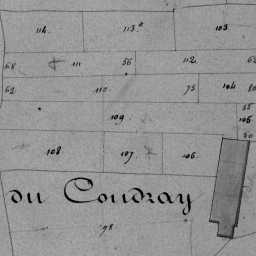 114. 113. 103.
68 111 56 112 62
62 110 75 104 80
109 55
105
80
108 107 106
du Coudray
98